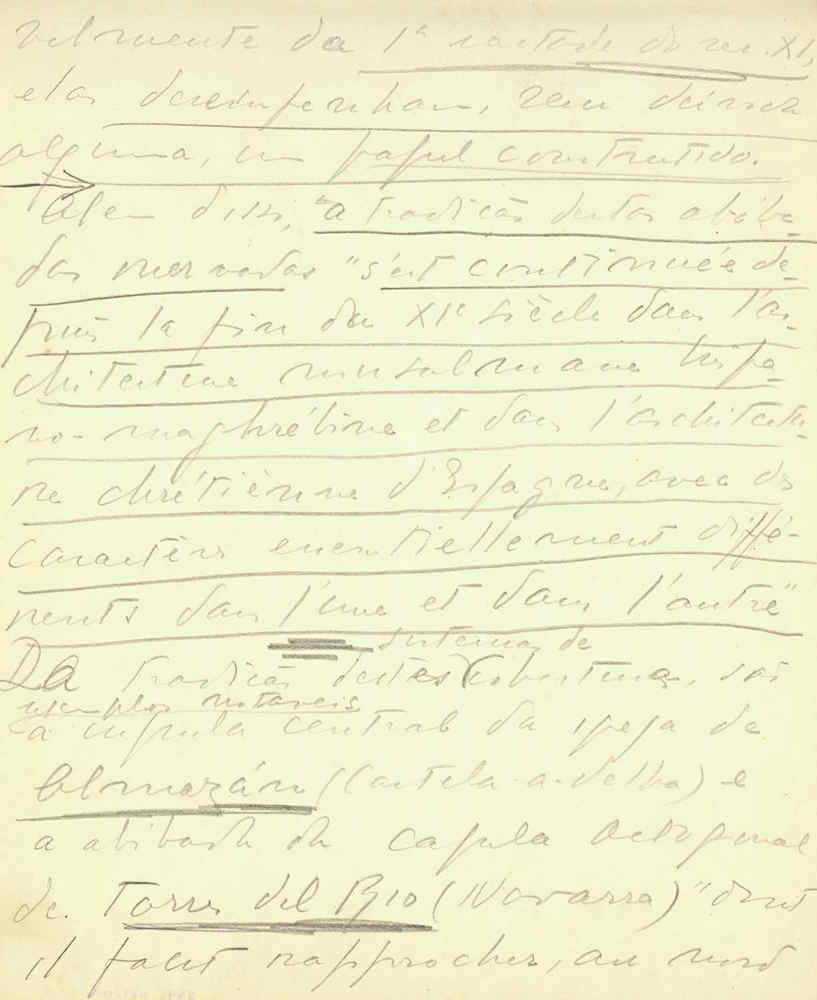 velmente da 1ª metade do sec. XI,
elas desempenham, sem dúvida
alguma, um papel construtivo.
Alem disso, "a tradicão destas abóba-
das nervadas "s'est continuée de-
puis la fin du XIe siècle dans l'ar-
chitecture musulmane hispa-
no-maghrébine et dans l'architectu-
re chrétiènne d'Espagne, avec des
caractères essentiellement diffé-
rents dans l'une et dans l'autre"
sistemas de
Da tradicão destes (coberturas, são
exemplos notaveis
a cupula central da igreja de
Almazán (Castela-a-Velha) e
a abóbada da capela octogonal
de Torres del Rio (Navarra) "dont
il faut rapprocher, au nord